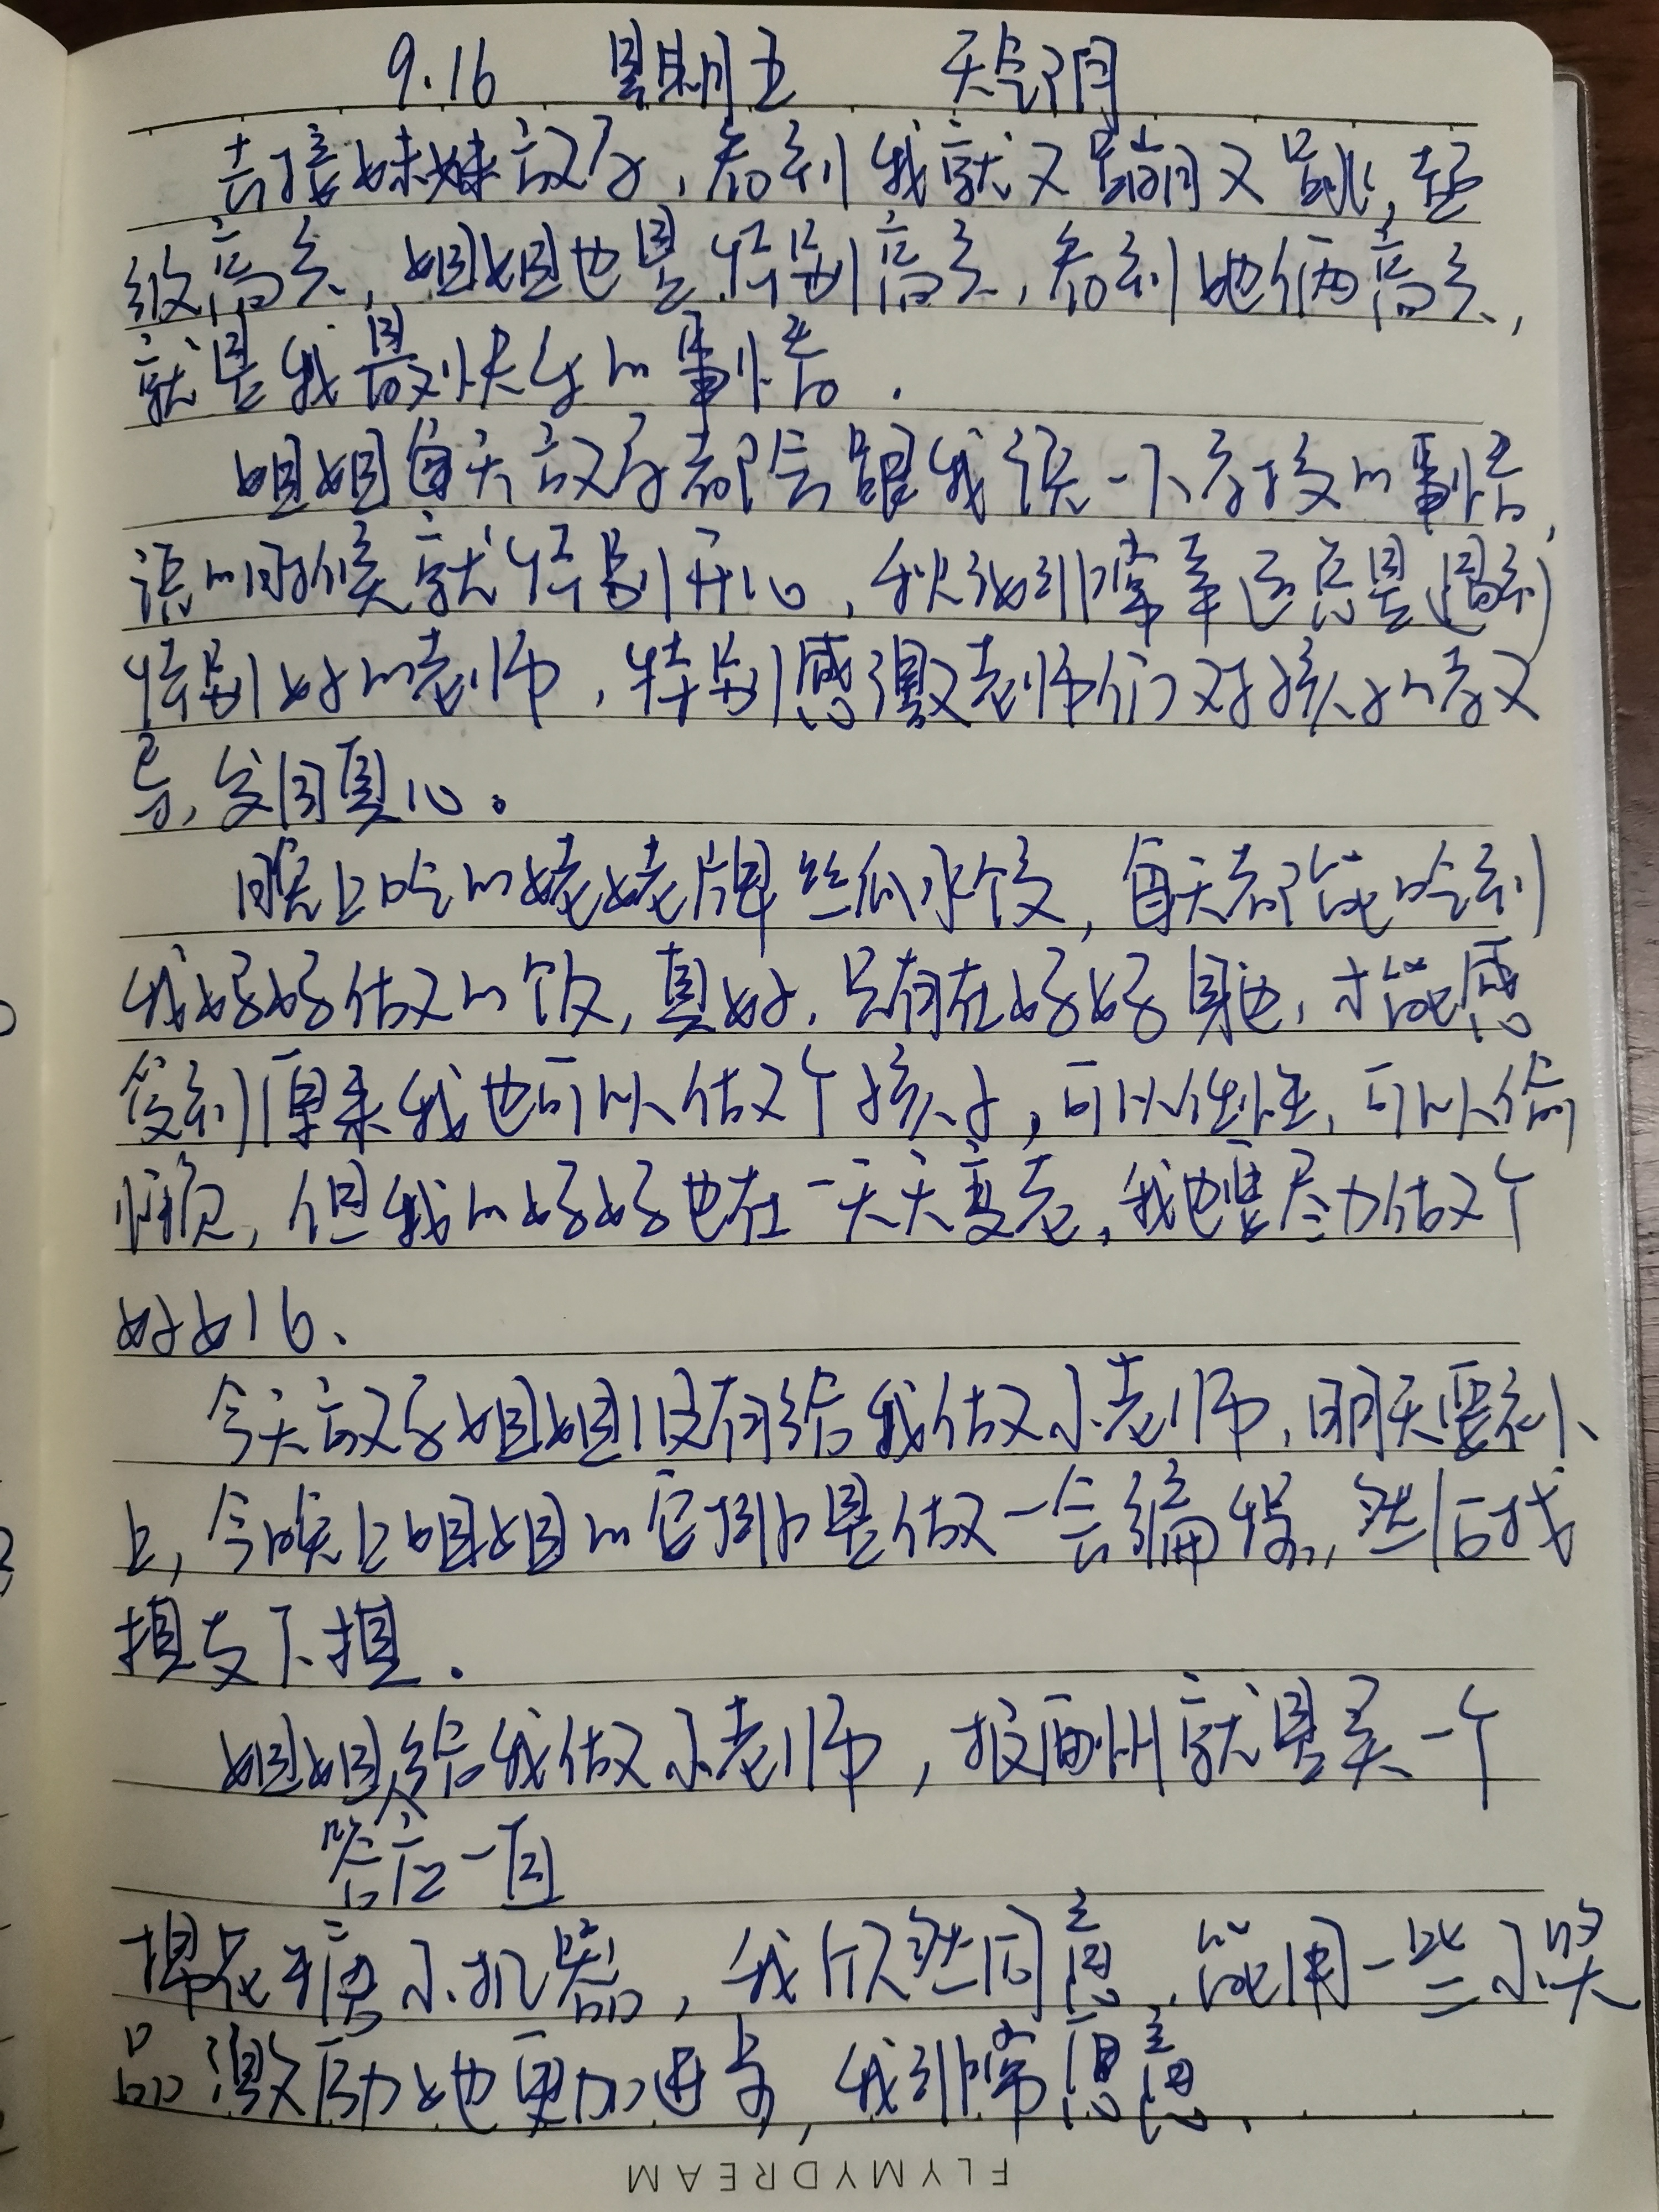 9.16 星期五 天气阴
去接妹妹放学,看到我就又蹦又跳,超
级高兴,姐姐也是特别高兴,看到她俩高兴,
就是我最快乐的事情.
姐姐每天放学都会跟我说一下学校的事情,
说的时候就特别开心,我们非常幸运总是遇到
特别好的老师,特别感激老师们对孩子的教
导,发自真心。
晚上吃的姥姥牌丝瓜水饺,每天都能吃到
我妈妈做的饭,真好.只有在妈妈身边,才能感
受到原来我也可以做个孩子,可以任性,可以偷
懒,但我的妈妈也在一天天变老,我也要尽力做个
好女儿.
今天放学姐姐没有给我做小老师,明天要补
上,今晚上姐姐的安排是做一会编程,然后找
摸与不摸.
姐姐给我做小老师,报酬就是买一个
答应一直
棉花糖小机器,我欣然同意,能用一些小奖
品激励她更加进步,我非常愿意.
FLYMYDREAM